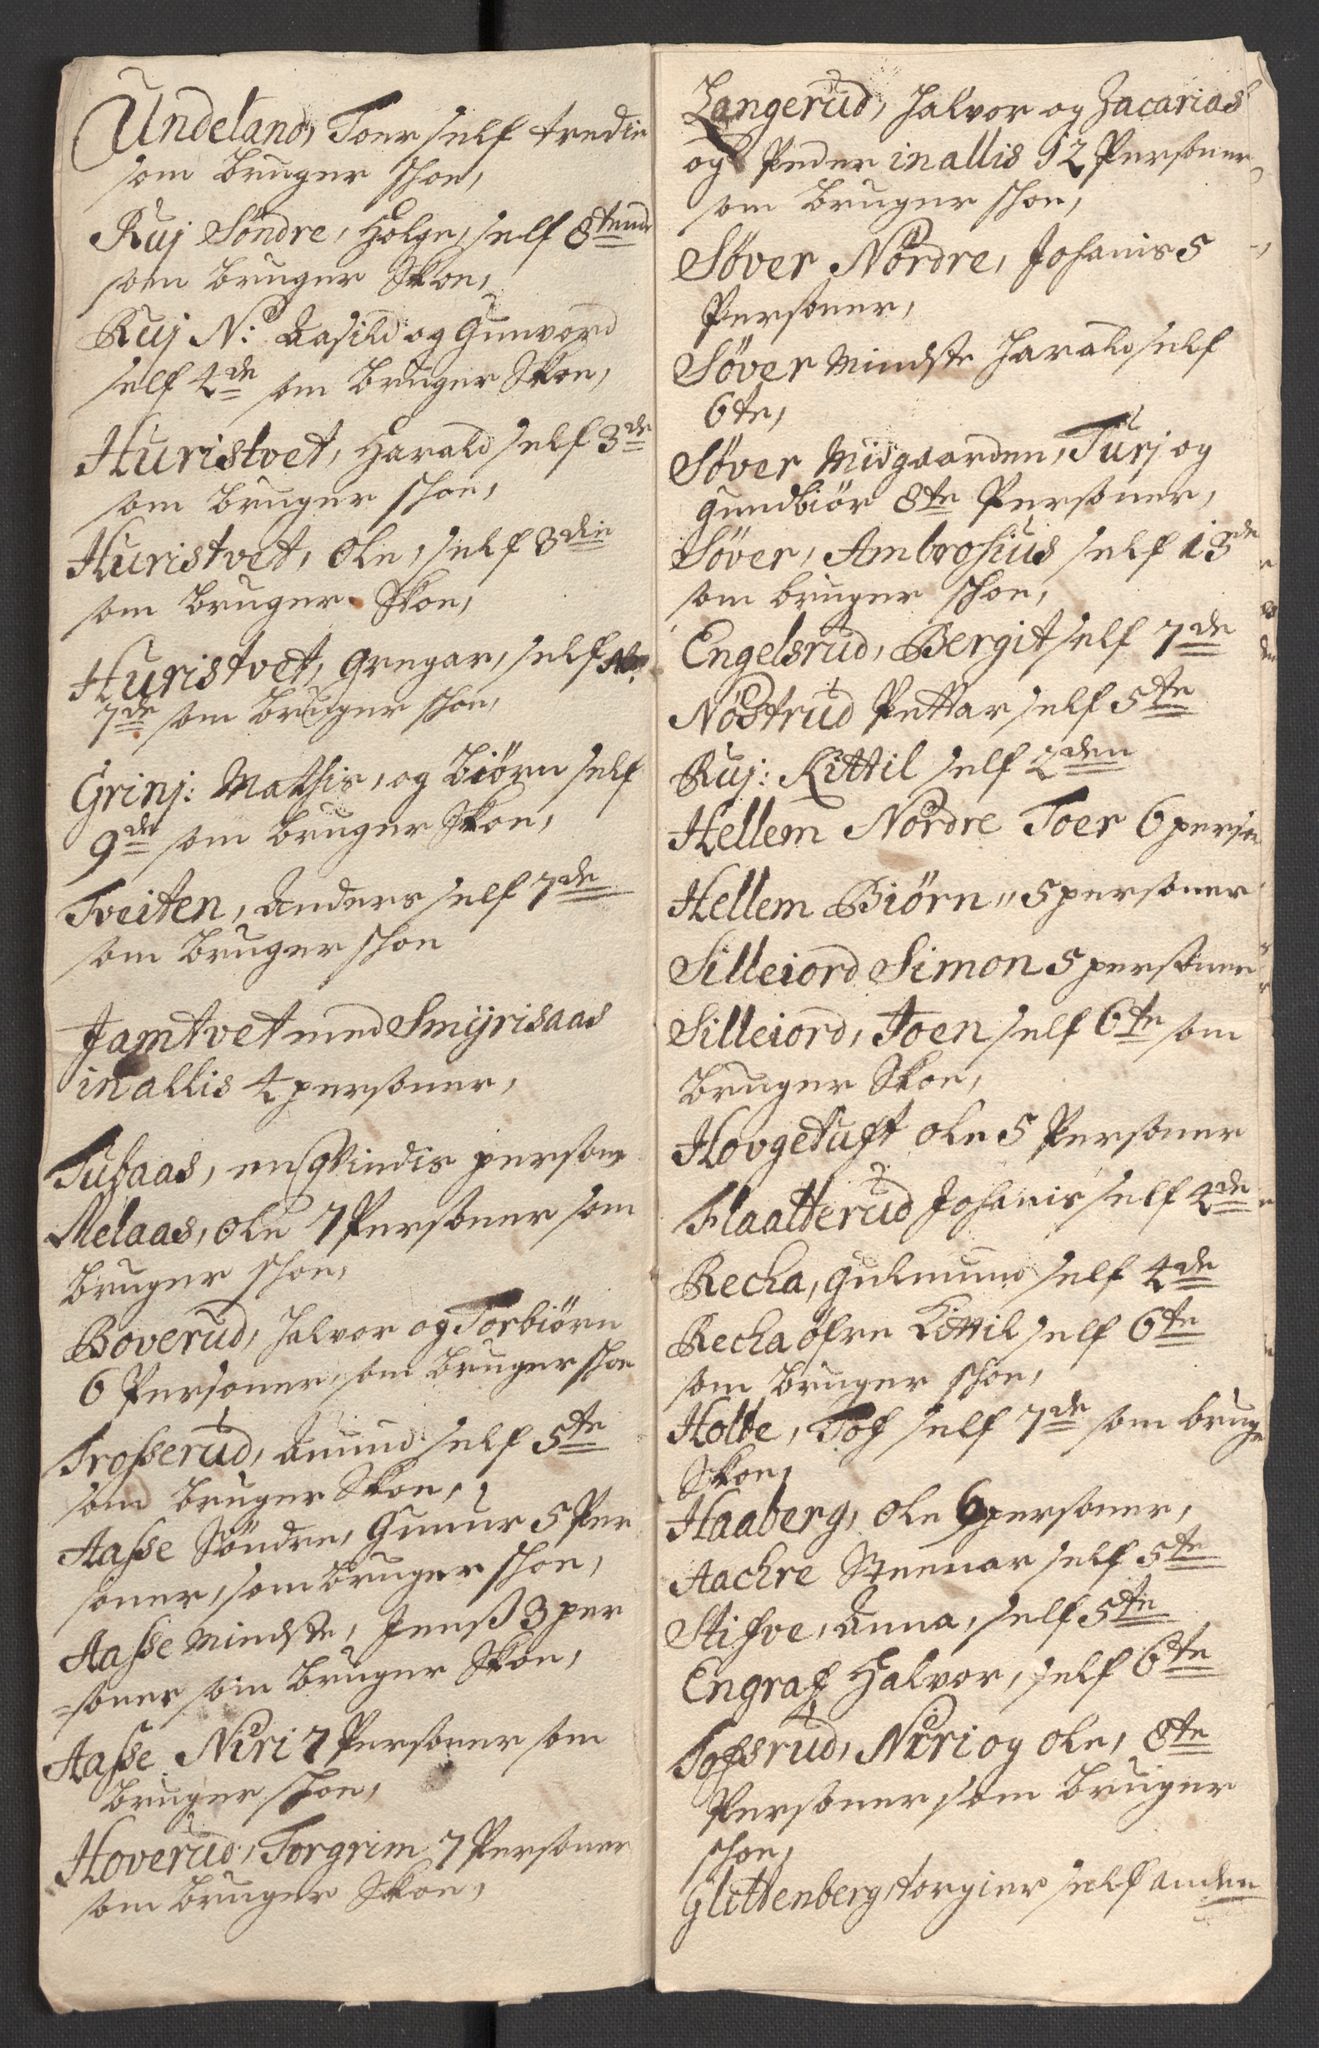 Undeland, Toer self tredie
som bruger schoe,
Ruj Söndre, Holge, self 8tende
som bruger Skoe,
Ruj N: Aasild og Gunvord
self 4de som bruger Skoe,
Huristvet, Harald self 3de
som bruger schoe,
Huristvet, Ole, self 3die
som bruger Skoe,
Huristvet, Gregar, self
7de som bruger schoe,
Grinj: Mathis, og Biörn self
9de som bruger Skoe,
Tveiten, Anders self 7de
som bruger schoe
Jamtvet med Smijrisaas
in allis 4 personer,
Tufaas, en qvindis person
Melaas, Ole 7 Personer som
bruger schoe,
Boverud, Halvor og Torbiörn
6 Personer, som bruger schoe
Trosserud, Amund self 5te
som bruger Skoe,
Aasse Söndre, Gunur 5 Per
soner, som bruger schoe,
Aasse Mindste, Jenß 3 per
=soner som bruger Skoe,
Aasse Niri 7 Personer som
bruger schoe,
Hoverud, Torgrim 7 Personer
som bruger Skoe,
Langerud, Halvor og Zacarias
og Peder in allis 12 Personer
som bruger schoe,
Söver Nordre, Johanis 5
Personer,
Söver Mindste Harald self
6te,
Söver Midgaarden, Turj og
Gundbiör 8te Personer,
Söver, Ambrosius self 13de
som bruger schoe,
Engelsrud, Bergit self 7de
Nöstrud Pettar self 5te
Ruj: Kittil self 2den
Hellem Nordre Toer 6 perso
Hellem Biörn 5 personer
Silleiord Simon 5 personer
Silleiord, Joen self 6te som
bruger Skoe,
Hovgetuft Ole 5 Personer
Flaatterud Johanis self 4de
Recha, Gulmund self 4de
Recha öfre Kittil self 6te
som bruger schoe,
Holte, Tof self 7de som bruge
Skoe,
Haaberg, Ole 6 personer,
Aachre Steenar self 5te
Stifve, Anna, self 5te
Engraf Halvor, self 6te
Tofsrud, Niri og Ole, 8te
Personer, som bruger
schoe,
Glittenberg, torgier self anden